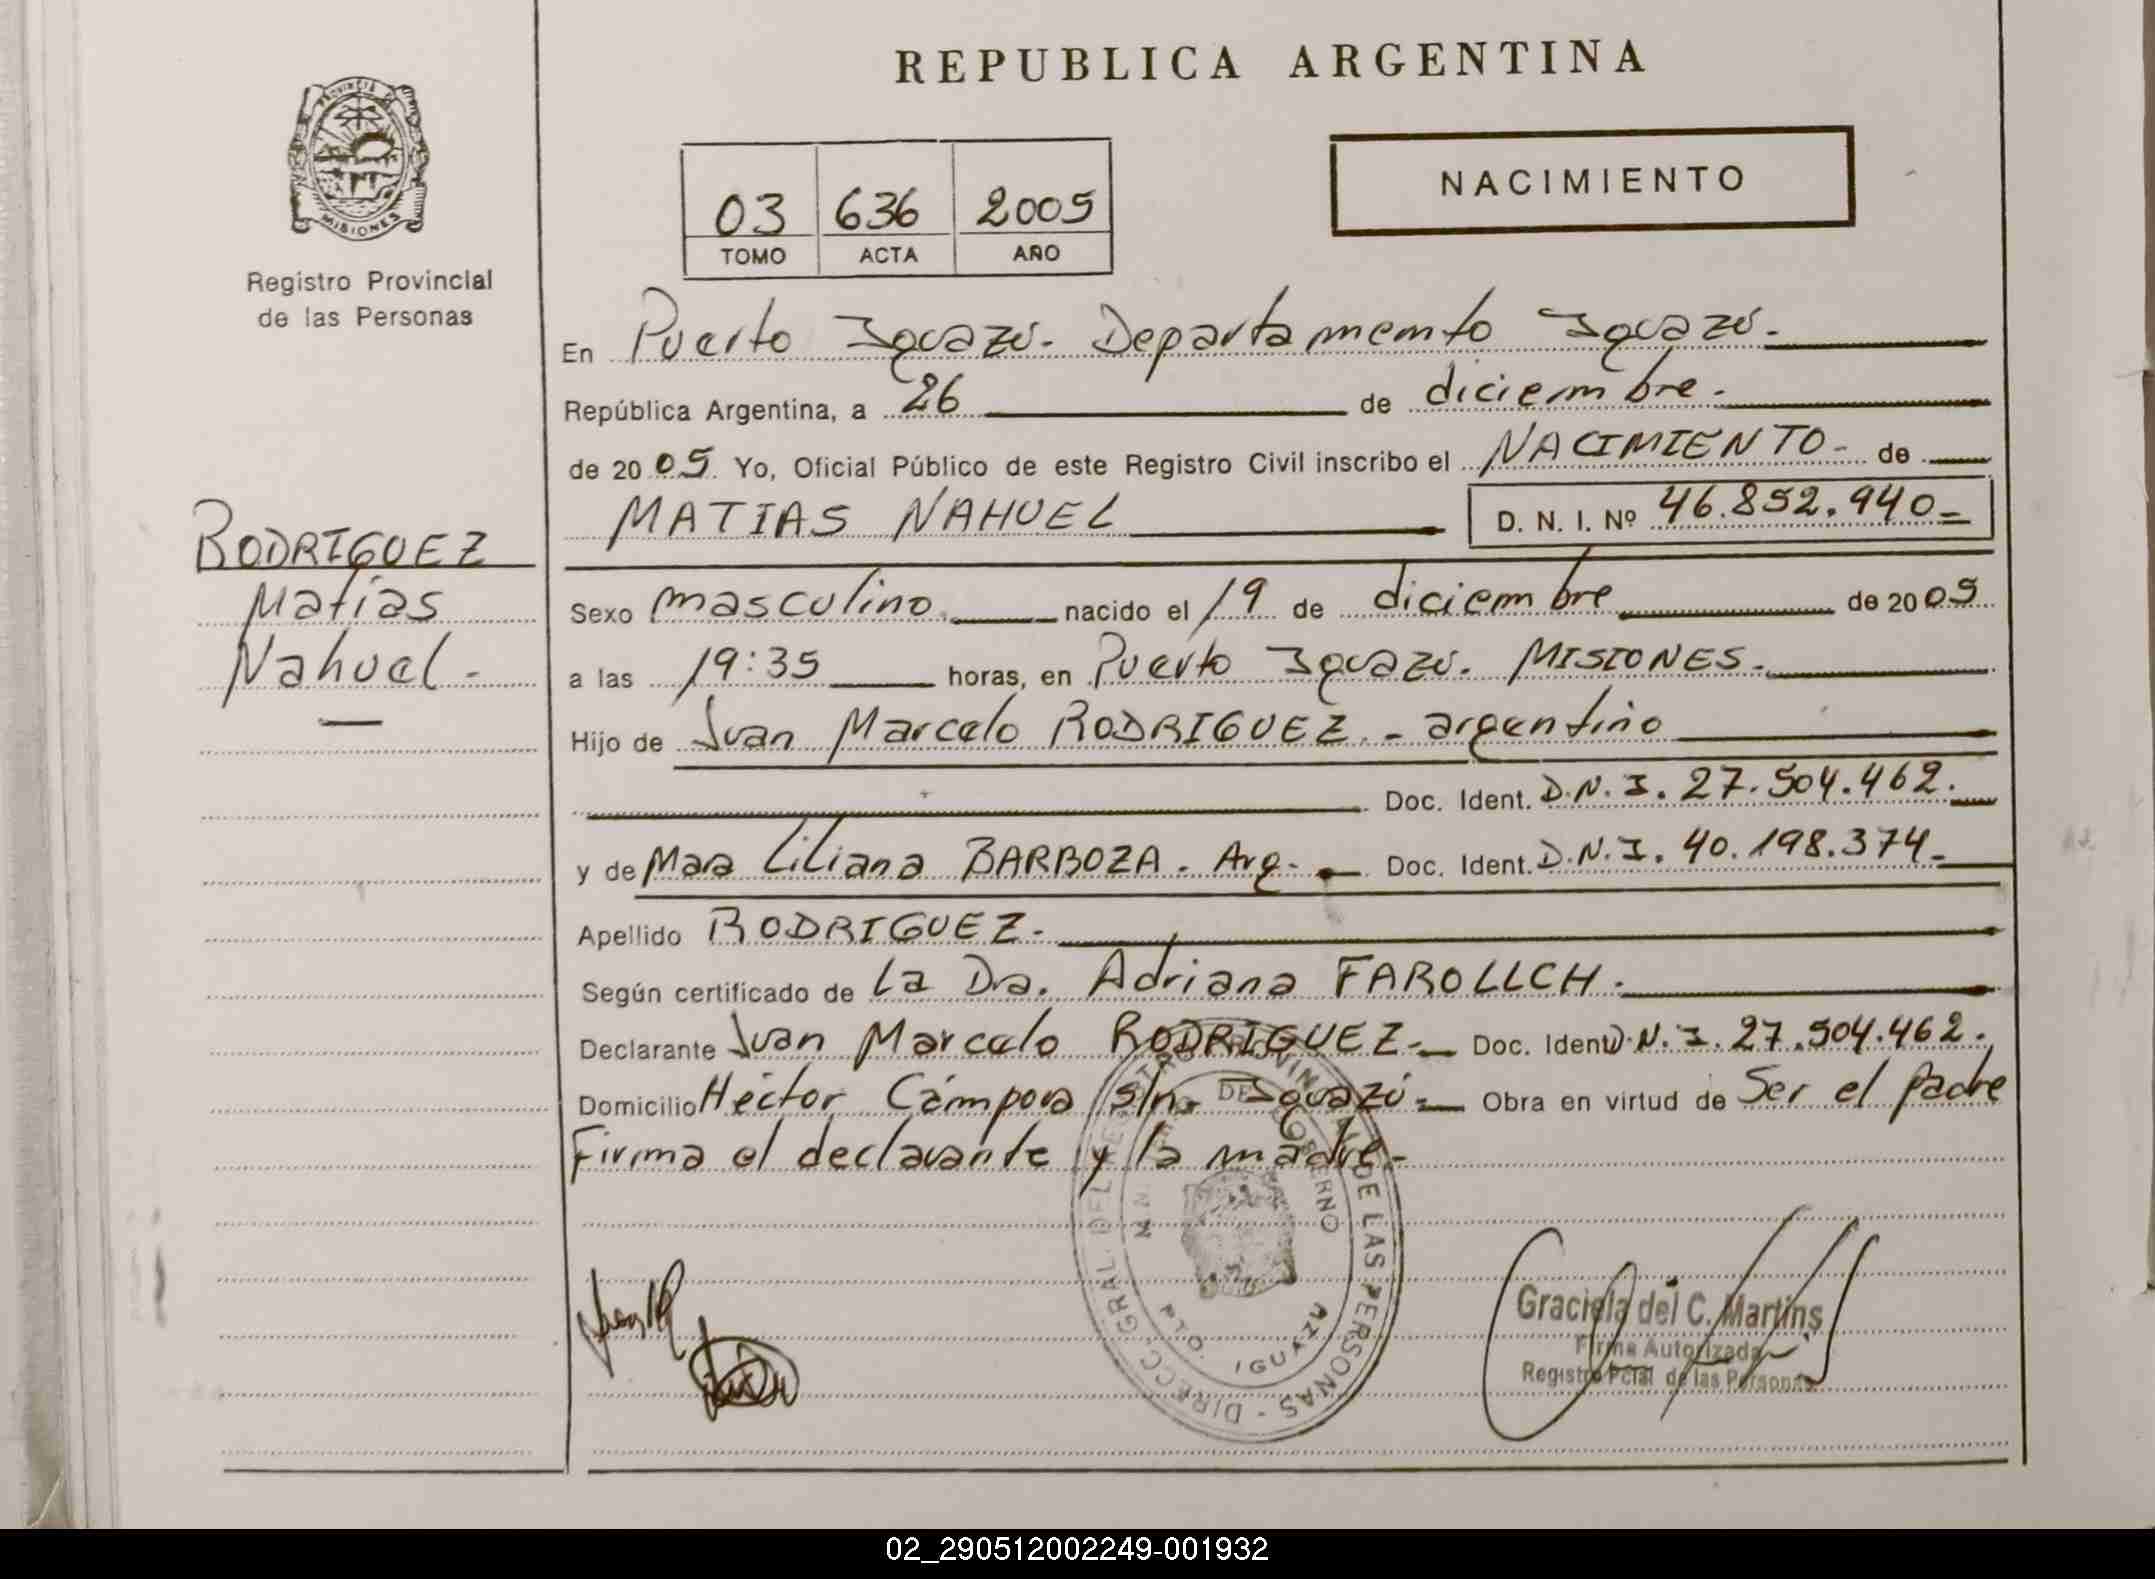 REPUBLICA ARGENTINA
PROVINCIA DE
MISIONES
Registro Provincial
de las Personas
03 636 2005
TOMO ACTA AÑO
NACIMIENTO
En Puerto Iguazú. Departamento Iguazú.
República Argentina, a 26 de diciembre.
de 20 05. Yo, Oficial Público de este Registro Civil inscribo el NACIMIENTO - de
MATIAS NAHUEL D. N. I. Nº 46.852.940-
RODRIGUEZ
Matías
Nahuel -
Sexo masculino. nacido el 19 de diciembre de 20 05
a las 19:35 horas, en Puerto Iguazú. MISIONES.
Hijo de Juan Marcelo RODRIGUEZ. - argentino
Doc. Ident. D.N.I. 27.504.462.
y de Liliana BARBOZA. Arg. - Doc. Ident. D.N.I. 40.198.374-
Apellido RODRIGUEZ.
Según certificado de la Dra. Adriana FAROLLCH.
Declarante Juan Marcelo RODRIGUEZ- Doc. Ident D.N.I. 27.504.462.
Domicilio Héctor Cámpora s/n. Iguazú- Obra en virtud de Ser el padre
Firma el declarante y la madre-
DIRECC. GRAL. DEL REGISTRO PROVINCIAL DE LAS PERSONAS -
DE GOBIERNO
PTO. IGUAZU
Graciela del C. Martins
Firma Autorizada
Registro Pcial de las Personas
02_290512002249-001932